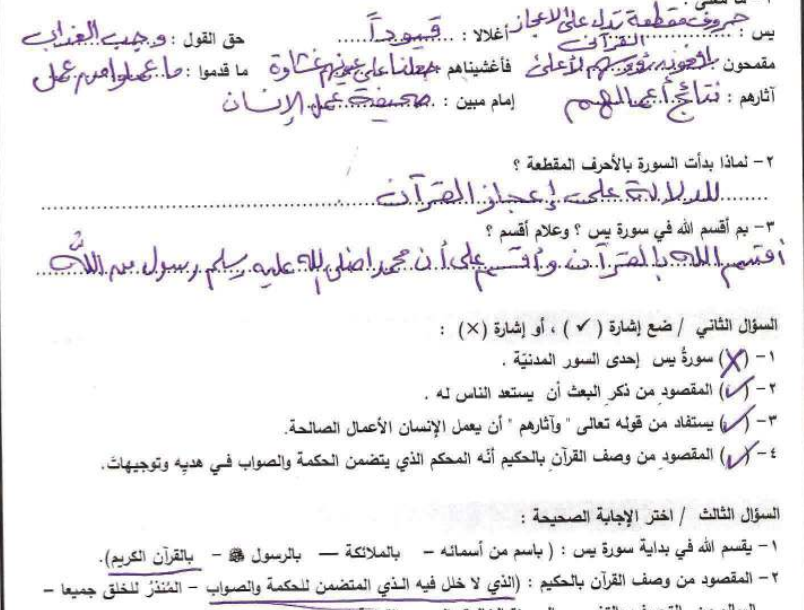 ١- ما معنى :
يس : حروف مقطعة تدل على الاعجاز القرآني أغلالا : قيوداً حق القول : وجب العذاب
مقمحون رؤوسهم لأعلى فأغشيناهم جعلنا على عينهم غشاوة ما قدموا : ما عملوا من عمل
آثارهم : نتائج أعمالهم إمام مبين : صحيفة عمل الإنسان
٢- لماذا بدأت السورة بالأحرف المقطعة ؟
للدلالة على إعجاز القرآن
٣- بم أقسم الله في سورة يس ؟ وعلام أقسم ؟
أقسم الله بالقرآن وأقسم على أن محمد صلى الله عليه وسلم رسول من الله
السؤال الثاني / ضع إشارة ( ✓ ) ، أو إشارة (×) :
١- (X) سورةُ يس إحدى السور المدنيّة .
٢- (✓) المقصود من ذكر البعث أن يستعد الناس له .
٣- (✓) يستفاد من قوله تعالى " وآثارهم " أن يعمل الإنسان الأعمال الصالحة.
٤- (✓) المقصود من وصف القرآن بالحكيم أنّه المحكم الذي يتضمن الحكمة والصواب في هديه وتوجيهات.
السؤال الثالث / اختر الإجابة الصحيحة :
١- يقسم الله في بداية سورة يس : ( باسم من أسمائه – بالملائكة — بالرسول ﷺ – بالقرآن الكريم).
٢- المقصود من وصف القرآن بالحكيم : (الذي لا خلل فيه الذي المتضمن للحكمة والصواب – المُنذرُ للخلق جميعا –